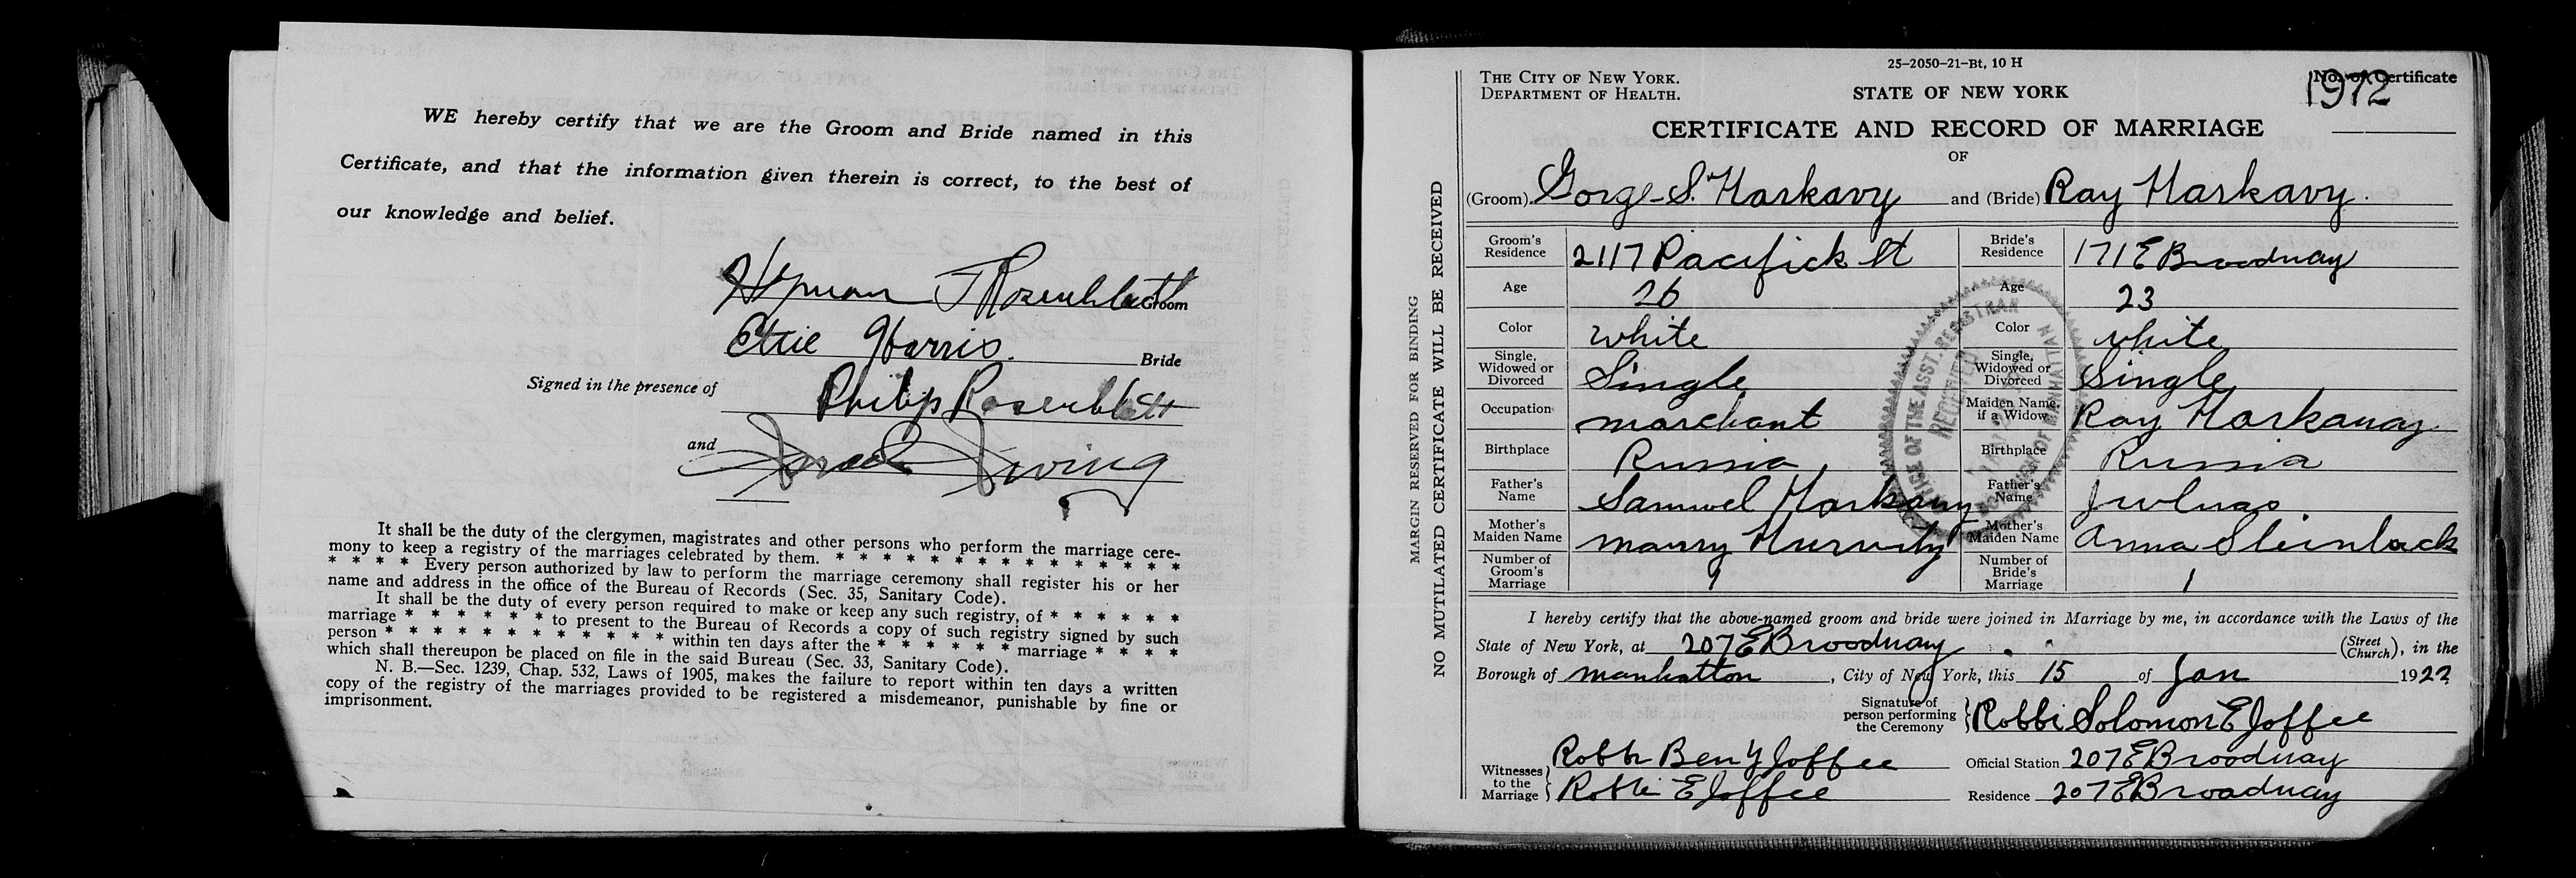 WE hereby certify that we are the Groom and Bride named in this
Certificate, and that the information given therein is correct, to the best of
our knowledge and belief.
Hyman J Rosenblatt Groom
Ettie Harris. Bride
Signed in the presence of Philip Rosenblatt
and Israel Irving
It shall be the duty of the clergymen, magistrates and other persons who perform the marriage cere-
mony to keep a registry of the marriages celebrated by them. * * * * * * * * * * * * * *
* * * * Every person authorized by law to perform the marriage ceremony shall register his or her
name and address in the office of the Bureau of Records (Sec. 35, Sanitary Code).
It shall be the duty of every person required to make or keep any such registry, of * * * * * *
marriage * * * * * * to present to the Bureau of Records a copy of such registry signed by such
person * * * * * * * * * * * * within ten days after the * * * * * * marriage * * * *
which shall thereupon be placed on file in the said Bureau (Sec. 33, Sanitary Code).
N. B.—Sec. 1239, Chap. 532, Laws of 1905, makes the failure to report within ten days a written
copy of the registry of the marriages provided to be registered a misdemeanor, punishable by fine or
imprisonment.
MARGIN RESERVED FOR BINDING
NO MUTILATED CERTIFICATE WILL BE RECEIVED
25-2050-21-Bt, 10 H
THE CITY OF NEW YORK.
DEPARTMENT OF HEALTH.
STATE OF NEW YORK
No. of Certificate
1972
CERTIFICATE AND RECORD OF MARRIAGE
OF
(Groom) Gorge S. Harkavy and (Bride) Ray Harkavy.
Groom's Residence 2117 Pacifick St Bride's Residence 171 E Broodway
Age 26 Age 23
Color white Color white
Single, Widowed or Divorced Single Single, Widowed or Divorced Single
Occupation marchant Maiden Name, if a Widow Ray Harkavay
Birthplace Russia Birthplace Russia
Father's Name Samuel Harkavy Father's Name
Mother's Maiden Name Marry Hurvity Mother's Maiden Name Anna Steinlack
Number of Groom's Marriage 1 Number of Bride's Marriage 1
OFFICE OF THE ASST. REGISTRAR
RECEIVED
BOROUGH OF MANHATTAN
I hereby certify that the above-named groom and bride were joined in Marriage by me, in accordance with the Laws of the
State of New York, at 207 E Broodway (Street Church), in the
Borough of manhatton, City of New York, this 15 of Jan 1922
Signature of person performing the Ceremony Robbi Solomon E Joffee
Witnesses to the Marriage Robbi Ben Y Joffee Official Station 207 E Broodway
Robbi E Joffee Residence 207 E Broadway